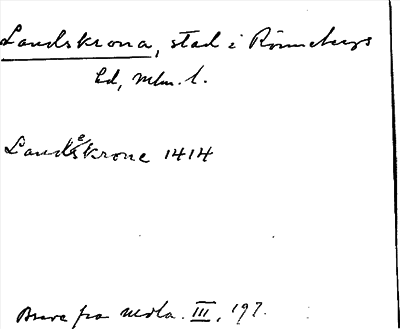 Landskrona, stad i Rönnebergs
hd, Mlm. l.
Landzekrone 1414
Breve fra Midla. III, 197.